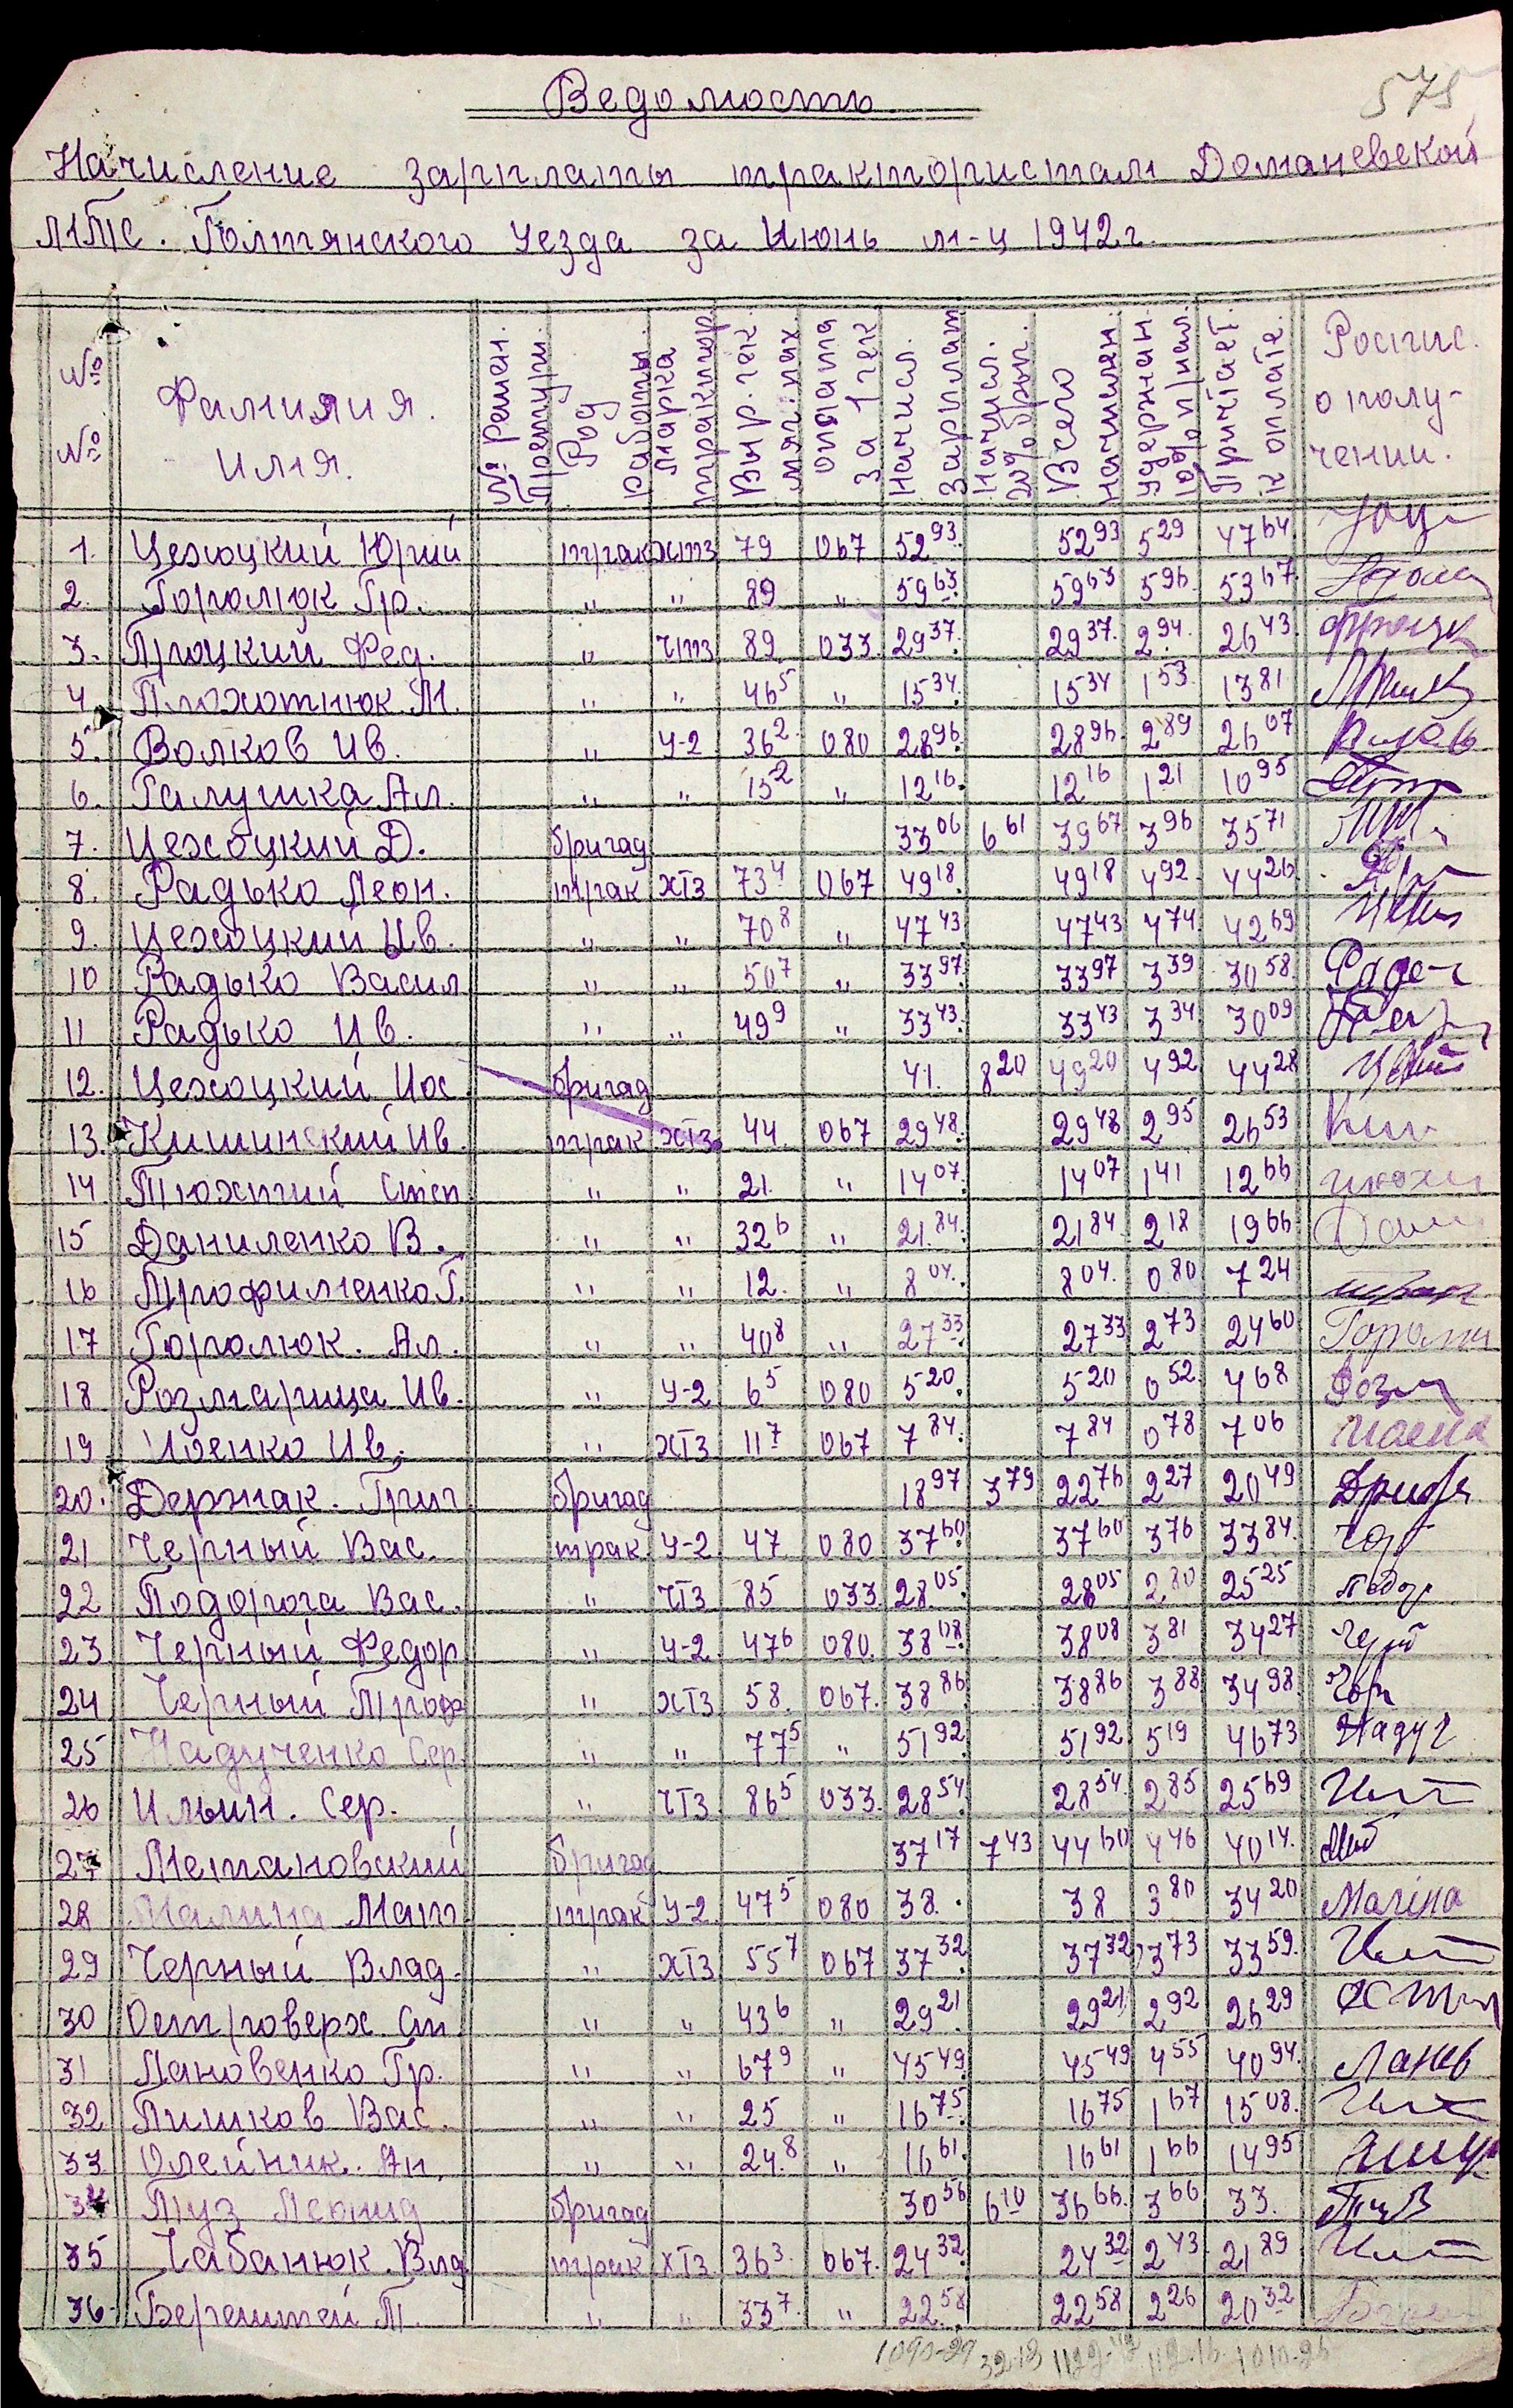 575
Ведомость
Начисление зарплаты трактористам Доманевской
МТС. Голтянского Уезда за Июнь м-ц 1942 г.
№ № Фамилия. Имя. № ремен. Род работы марка трактор Выр. гек. мяг. пах. оплата за 1 гек Начисл. зарплат Начисл. Всего начислен. Удержан 10% Причiтает. к оплате. Роспис. о полу- чении.
1. Цехоцкий Юрий трак хтз 79 067 52 93 52 93 5 29 47 64
2. Горалюк Гр. " " 89 " 59 63 59 63 5 96 53 67
3. Троцкий Фед. " Чтз 89 033 29 37 29 37 2 94 26 43
4. Плохотнюк М. " " 46 5 " 15 34 15 34 1 53 13 81
5. Волков Ив. " У-2 36 2 080 28 96 28 96 2 89 26 07
6. Галушка Ал. " " 15 2 " 12 16 12 16 1 21 10 95
7. Цехоцкий Д. бригад 33 06 6 61 39 67 3 96 35 71
8. Радько Леон. трак ХТЗ 73 4 067 49 18 49 18 4 92 44 26
9. Цехоцкий Ив. " " 70 8 " 47 43 47 43 4 74 42 69
10 Радько Васил " " 50 7 " 33 97 33 97 3 39 30 58
11 Радько Ив. " " 49 9 " 33 43 33 43 3 34 30 09
12. Цехоцкий Иос бригад 41. 8 20 49 20 4 92 44 28
13. Кишинский Ив. трак ХТЗ 44 067 29 48 29 48 2 95 26 53
14 Тюхтий Степ " " 21. " 14 07 14 07 1 41 12 66
15 Даниленко В. " " 32 6 " 21 84 21 84 2 18 19 66
16 Трофименко Г. " " 12. " 8 04 8 04 0 80 7 24
17 Горалюк. Ал. " " 40 8 " 27 33 27 33 2 73 24 60
18 Розмарица Ив. " У-2 6 5 080 5 20 5 20 0 52 4 68
19 Ив. " ХТЗ 11 7 067 7 84 7 84 0 78 7 06
20. Держак. Григ бригад 18 97 3 79 22 76 2 27 20 49
21 Черный Вас. трак. У-2 47 080 37 60 37 60 3 76 33 84
22 Подорога Вас. " ЧТЗ 85 033 28 05 28 05 2 80 25 25
23 Черный Федор " У-2 47 6 080. 38 08 38 08 3 81 34 27
24 Черный Троф " ХТЗ 58. 067. 38 86 38 86 3 88 34 98
25 Надученко Сер. " " 77 5 " 51 92 51 92 5 19 46 73
26 Ильин. Сер. " ЧТЗ 86 5 033. 28 54 28 54 2 85 25 69
27 Метановский бригад 37 17 7 43 44 60 4 46 40 14
28 Малина Мат трак У-2 47 5 080 38. 38 3 80 34 20
29 Черный Влад. " ХТЗ 55 7 067 37 32 37 32 3 73 33 59
30 Островерх. Ст. " " 43 6 " 29 21 29 21 2 92 26 29
31 Лановенко Гр. " " 67 9 " 45 49 45 49 4 55 40 94
32 Пишков Вас. " " 25 " 16 75 16 75 1 67 15 08
33 Олейник. Ан. " " 24.8 " 16 61 16 61 1 66 14 95
34 Туз Леонид бригад 30 56 6 10 36 66 3 66 33.
35 Чабанюк. Влад трак ХТЗ 36 3 067. 24 32 24 32 2 43 21 89
36. Берештей П. " " 33 7 " 22 58 22 58 2 26 20 32